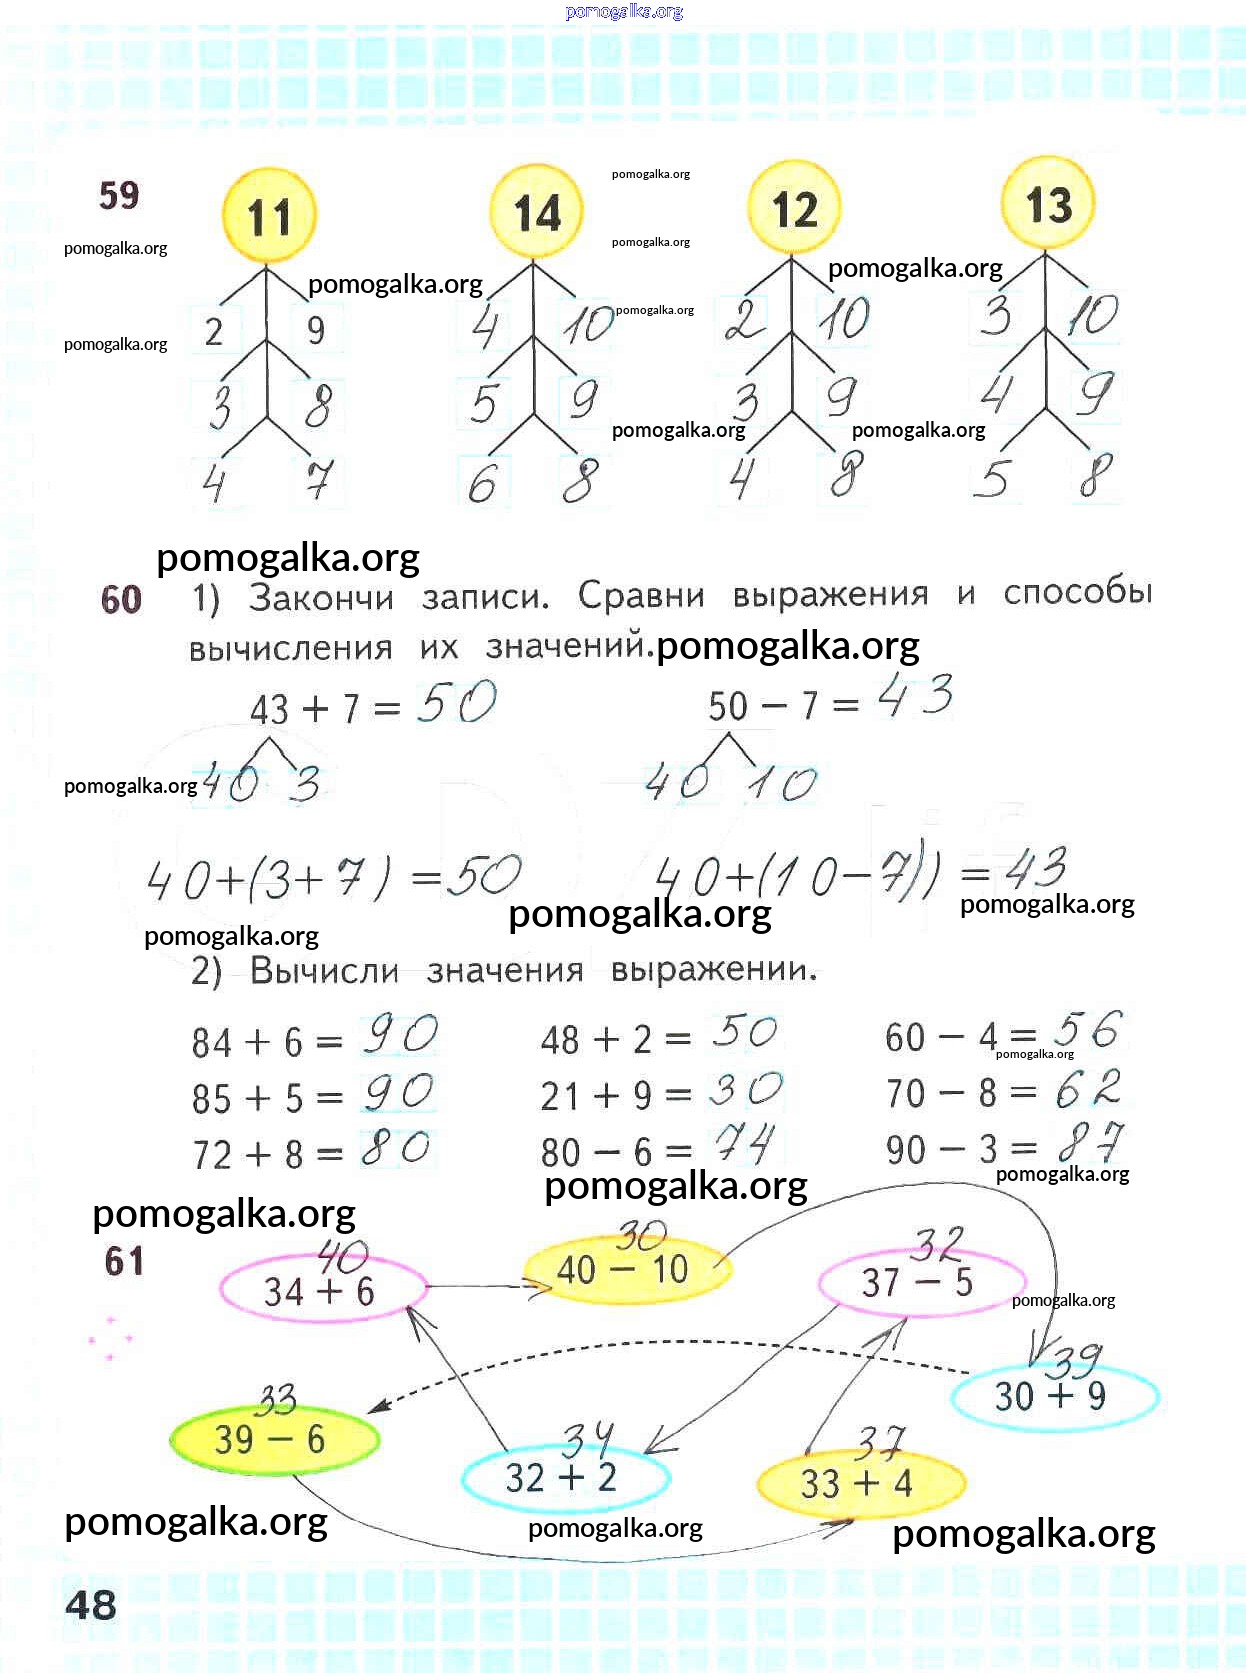 pomogalka.org
59 11 14 pomogalka.org 12 13
pomogalka.org pomogalka.org
pomogalka.org pomogalka.org
2 9 4 10 pomogalka.org 2 10 3 10
pomogalka.org
3 8 5 9 3 9 4 9
pomogalka.org pomogalka.org
4 7 6 8 4 8 5 8
pomogalka.org
60 1) Закончи записи. Сравни выражения и способы
вычисления их значений. pomogalka.org
43 + 7 = 50 50 − 7 = 43
pomogalka.org 40 3 40 10
40+(3+7) =50 40+(10−7)) =43
pomogalka.org pomogalka.org pomogalka.org
2) Вычисли значения выражении.
84 + 6 = 90 48 + 2 = 50 60 − 4 = 56
pomogalka.org
85 + 5 = 90 21 + 9 = 30 70 − 8 = 62
72 + 8 = 80 80 − 6 = 74 90 − 3 = 87
pomogalka.org pomogalka.org pomogalka.org
40 30 32
61 34 + 6 40 − 10 37 − 5
pomogalka.org
39
30 + 9
33 34 37
39 − 6 32 + 2 33 + 4
pomogalka.org pomogalka.org pomogalka.org
48